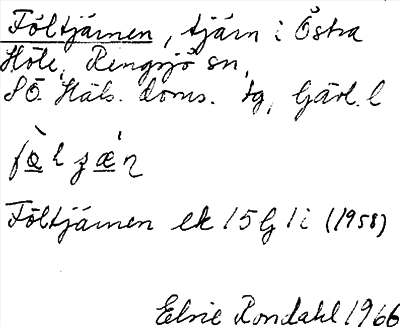 Föltjärnen, tjärn i Östra
Höle, Rengsjö sn,
SÖ. Häls. doms. tg, Gävl. l
Föltjärnen ek 15G 1i (1958)
Elsie Rondahl 1966